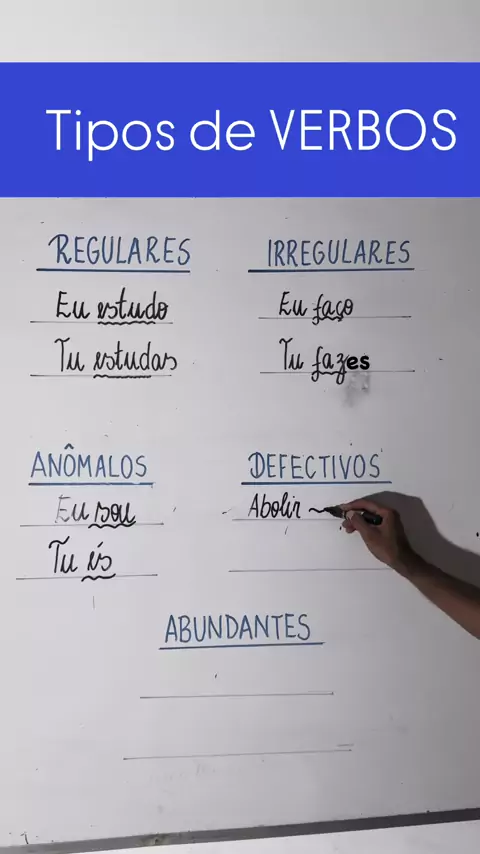 Tipos de VERBOS
REGULARES
Eu estudo
Tu estudas
IRREGULARES
Eu faço
Tu fazes
ANÔMALOS
Eu sou
Tu és
DEFECTIVOS
Abolir
ABUNDANTES